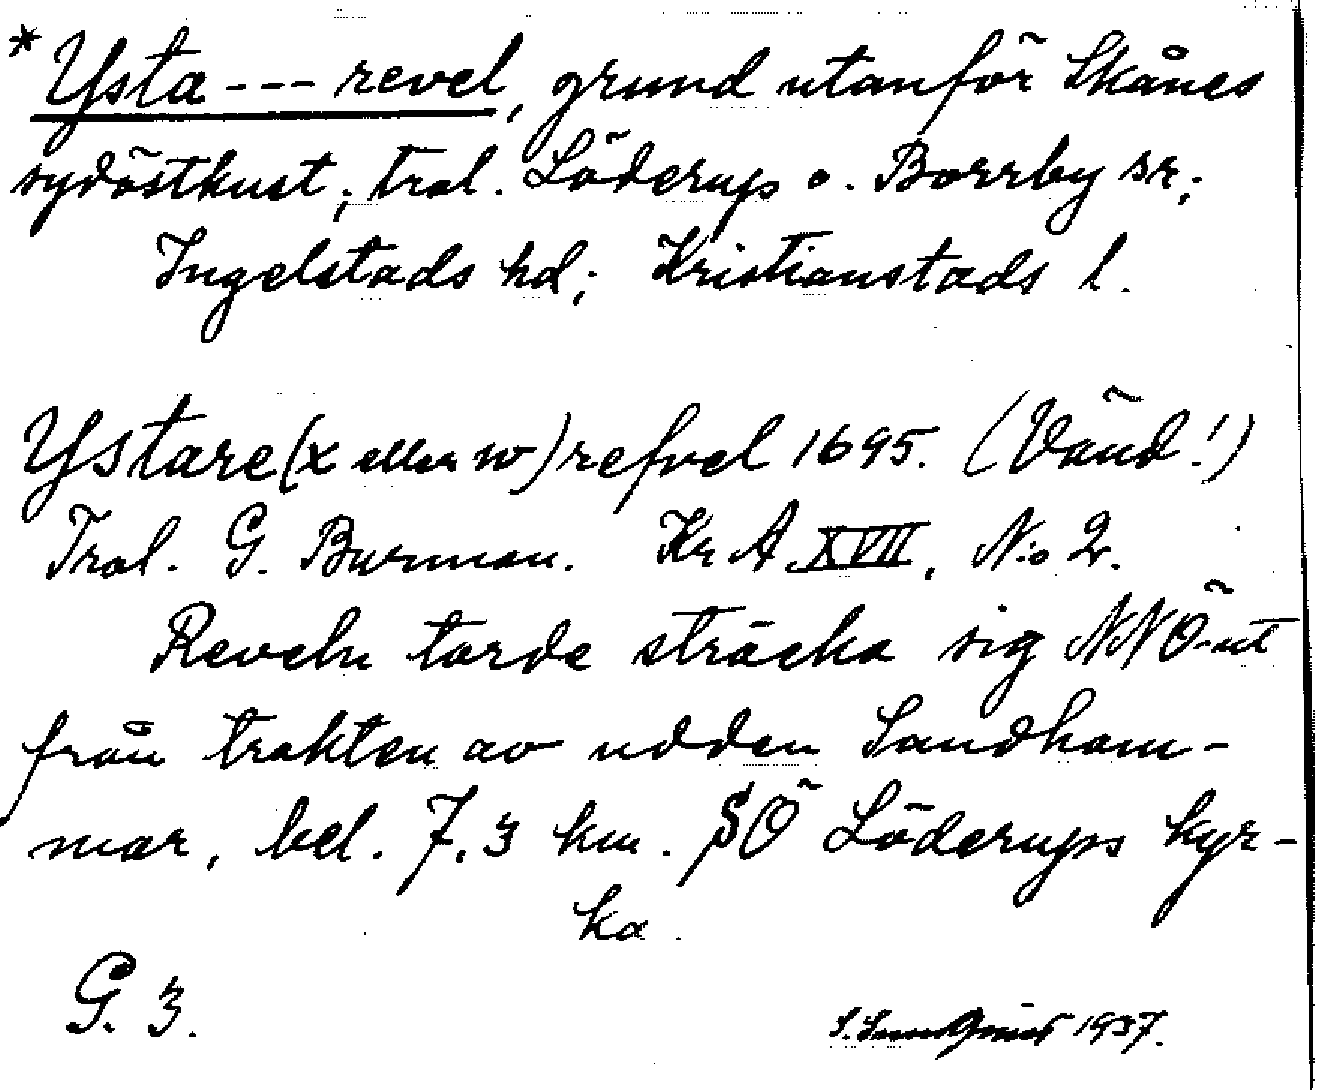 *Ysta --- revel, grund utanför Skånes
sydöstkust; trol. Löderups o. Borrby sr;
Ingelstads hd; Kristianstads l.
Ystare(x eller w)refvel 1695. (Vänd!)
Trol. G. Burman. Kr A XVII, N:o 2.
Reveln torde sträcka sig NNO-ut
från trakten av udden Sandham-
mar, bel. 7,3 km. SO Löderups kyr-
ka.
G. 3.
1937.